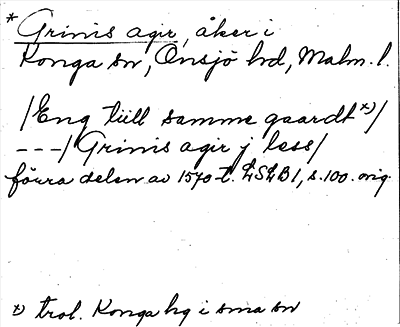 * Grinis agir, åker i
Konga sn, Onsjö hd, Malm. l.
/Eng tiill samme gaardt x)/
---/Grinis agir j less/
förra delen av 1570-t. LSLB1, s. 100. orig.
x) trol. Konga hg i sma sn